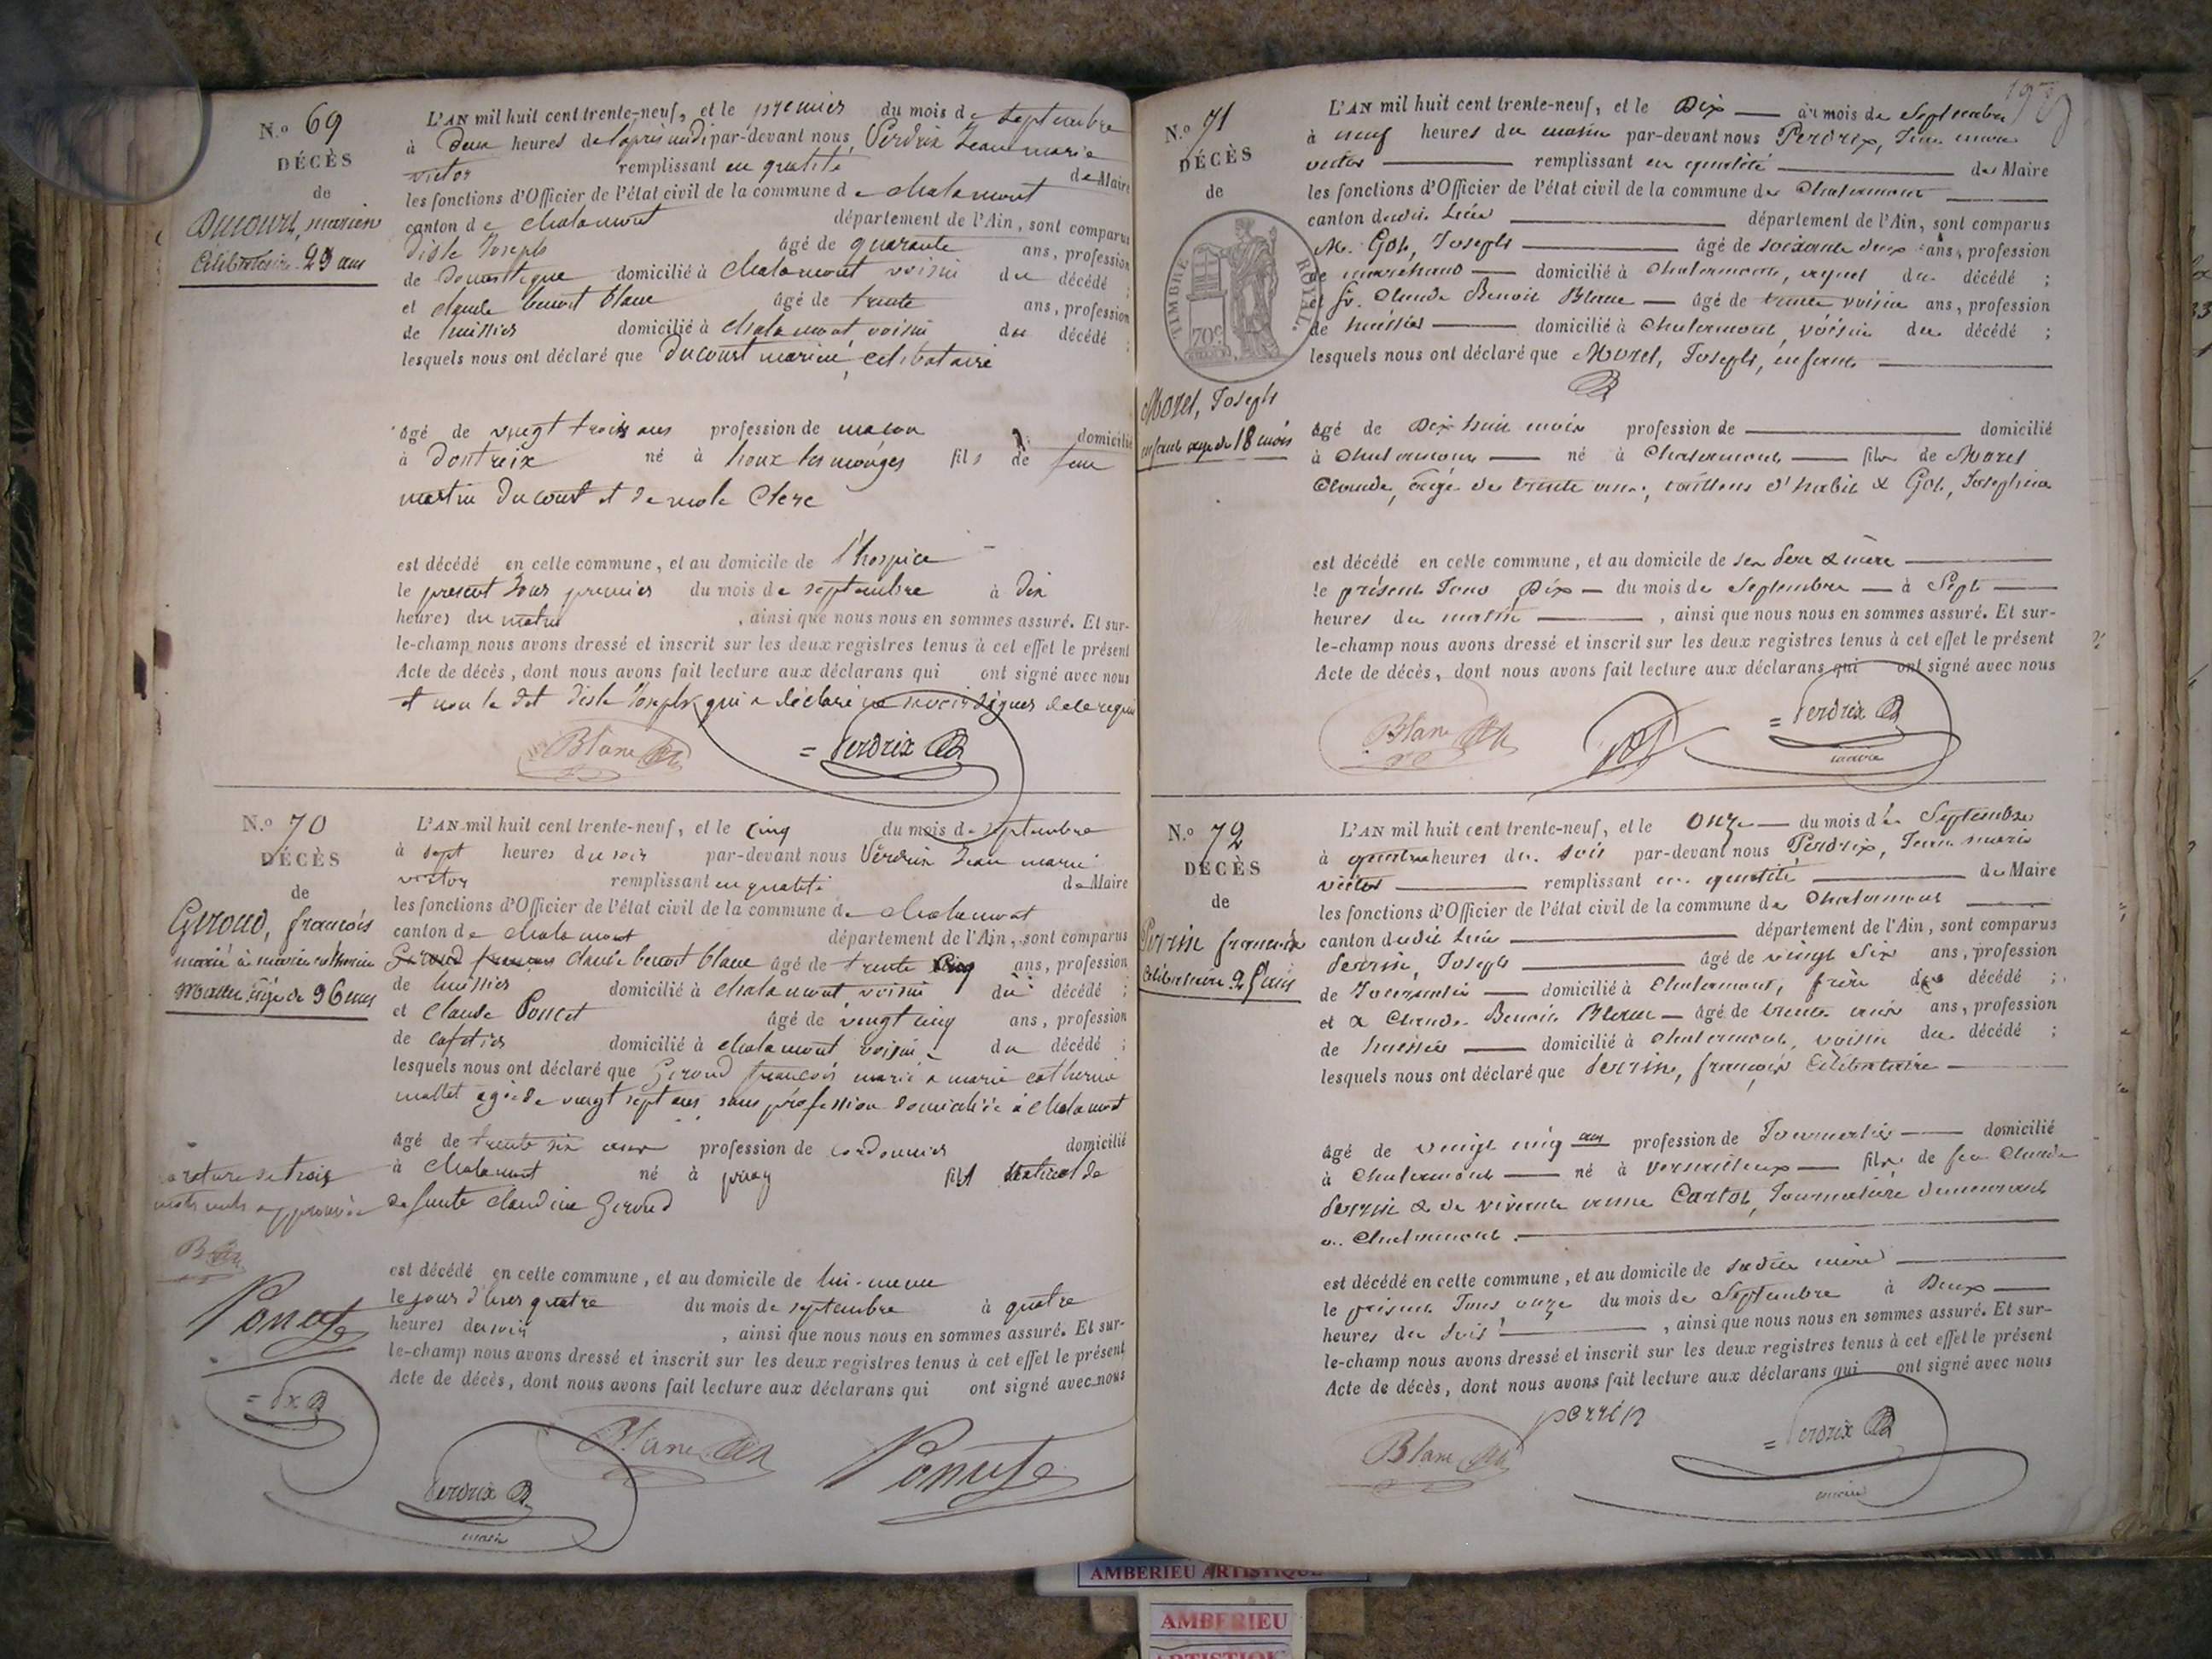 N.o 69
DÉCÈS
de
Ducourt, marien
Célibataire 23 ans
L'AN mil huit cent trente-neuf, et le premier du mois de septembre
à deux heures de l'après midi par-devant nous, Perdrix Jean marie
victor remplissant en qualité de Maire
les fonctions d'Officier de l'état civil de la commune de chalamont
canton de chalamont département de l'Ain, sont comparus
Diste Joseph âgé de quarante ans, profession
de Domestique domicilié à chalamont voisin du décédé ;
et claude benoit blanc âgé de trente ans, profession
de huissier domicilié à chalamont voisin du décédé ;
lesquels nous ont déclaré que Ducourt marien, celibataire
âgé de vingt trois ans profession de macon domicilié
à Dontreix né à fils de feu
martin Ducourt et de Clerc
est décédé en cette commune, et au domicile de l'hospice
le present jour premier du mois de septembre à dix
heures du matin , ainsi que nous nous en sommes assuré. Et sur-
le-champ nous avons dressé et inscrit sur les deux registres tenus à cet effet le présent
Acte de décès, dont nous avons fait lecture aux déclarans qui ont signé avec nous
et non le dit Diste Joseph qui a déclaré ne savoir signer de ce requis
Blanc
Perdrix
N.o 70
DÉCÈS
de
Giroud, francois
marié à marie catherine
Mallet âgé de 36 ans
L'AN mil huit cent trente-neuf, et le cinq du mois de septembre
à sept heures du soir par-devant nous Perdrix Jean marie
victor remplissant en qualité de Maire
les fonctions d'Officier de l'état civil de la commune de chalamont
canton de chalamont département de l'Ain, sont comparus
Giroud francois claude benoit blanc âgé de trente cinq ans, profession
de huissier domicilié à chalamont voisin du décédé ;
et Claude Poncet âgé de vingt cinq ans, profession
de cafetier domicilié à chalamont voisin du décédé ;
lesquels nous ont déclaré que Giroud francois marié a marie catherine
mallet agée de vingt sept ans, sans profession domiciliée à chalamont
âgé de trente six ans profession de cordonnier domicilié
à chalamont né à priay fils naturel de
defunte claudine Giroud
rature de trois
mots nuls approuvée
Poncet
est décédé en cette commune, et au domicile de lui-meme
le jour d'hier quatre du mois de septembre à quatre
heures du soir , ainsi que nous nous en sommes assuré. Et sur-
le-champ nous avons dressé et inscrit sur les deux registres tenus à cet effet le présent
Acte de décès, dont nous avons fait lecture aux déclarans qui ont signé avec nous
Blanc
Poncet
Perdrix
maire
N.o 71
DÉCÈS
de
TIMBRE ROYAL.
70c
Morel, Joseph
enfant agé de 18 mois
L'AN mil huit cent trente-neuf, et le Dix du mois de Septembre
à neuf heures du matin par-devant nous Perdrix, Jean marie
victor remplissant en qualité de Maire
les fonctions d'Officier de l'état civil de la commune de Chalamont
canton dudit lieu département de l'Ain, sont comparus
M. Joseph âgé de soixante deux ans, profession
de marchand domicilié à Chalamont, ayeul du décédé ;
et Sr. Claude Benoit Blanc âgé de trente ans, profession
de huissier domicilié à Chalamont, voisin du décédé ;
lesquels nous ont déclaré que Morel, Joseph, enfant
âgé de Dix huit mois profession de domicilié
à Chalamont né à Chalamont fils de Morel
Claude, âgé de trente ans, tailleur d'habit & Josephine
est décédé en cette commune, et au domicile de ses Pere & mère
le présent Jour Dix du mois de Septembre à Sept
heures du matin , ainsi que nous nous en sommes assuré. Et sur-
le-champ nous avons dressé et inscrit sur les deux registres tenus à cet effet le présent
Acte de décès, dont nous avons fait lecture aux déclarans qui ont signé avec nous
Blanc
Perdrix
maire
N.o 72
DÉCÈS
de
Perrin francois
Célibataire 25 ans
L'AN mil huit cent trente-neuf, et le Onze du mois de Septembre
à quatre heures du soir par-devant nous Perdrix, Jean marie
victor remplissant en qualité de Maire
les fonctions d'Officier de l'état civil de la commune de Chalamont
canton dudit lieu département de l'Ain, sont comparus
Perrin, Joseph âgé de vingt Six ans, profession
de Journalier domicilié à Chalamont, frère du décédé ;
et Claude Benoit Blanc âgé de trente ans, profession
de huissier domicilié à Chalamont, voisin du décédé ;
lesquels nous ont déclaré que Perrin, françois Célibataire
âgé de vingt cinq ans profession de Journalier domicilié
à Chalamont né à Versailleux fils de feu Claude
Perrin & de vivante anne Cartot, Journalière demeurant
a Chalamont.
est décédé en cette commune, et au domicile de sadite mère
le présent Jour onze du mois de Septembre à Deux
heures du soir , ainsi que nous nous en sommes assuré. Et sur-
le-champ nous avons dressé et inscrit sur les deux registres tenus à cet effet le présent
Acte de décès, dont nous avons fait lecture aux déclarans qui ont signé avec nous
perrin
Blanc
Perdrix
maire
AMBERIEU ARTISTIQUE
AMBERIEU
ARTISTIQUE